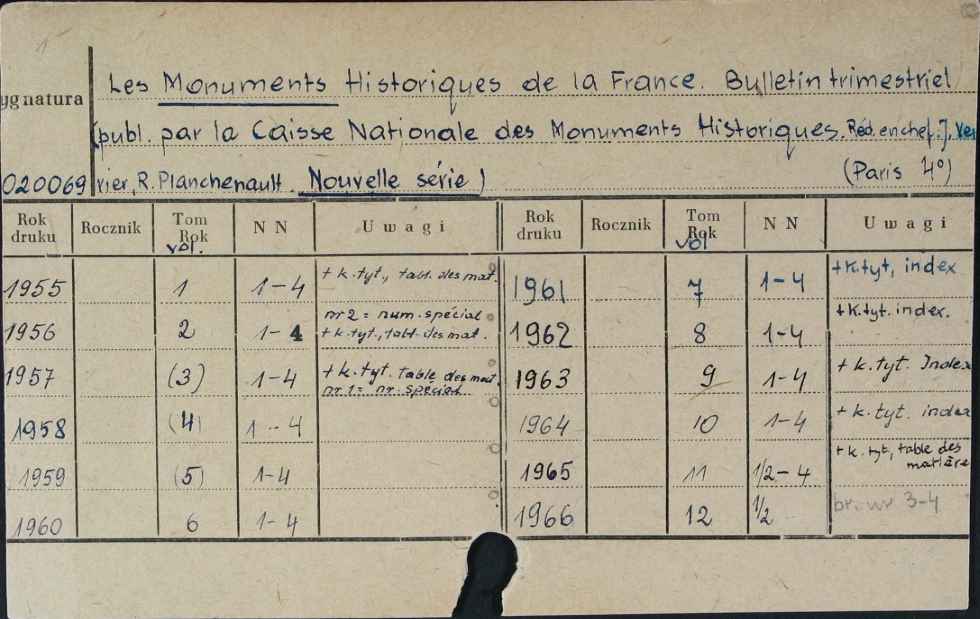 Les Monuments Historiques de la France. Bulletin trimestriel
ygnatura
(publ. par la Caisse Nationale des Monuments Historiques. Réd. en chef. J. Ver
020069 rier, R. Planchenault. Nouvelle série) (Paris 4°)
Rok druku Rocznik Tom Rok vol. NN Uwagi Rok druku Rocznik Tom Rok vol NN Uwagi
1955 1 1-4 + k. tyt., tabl. des mat. 1961 7 1-4 + k. tyt, index
1956 2 1-4 nr 2 = num. spécial + k. tyt., tabl. des mat. 1962 8 1-4 + k. tyt. index.
1957 (3) 1-4 + k. tyt. table des mat. nr. 1 = nr. spécial 1963 9 1-4 + k. tyt. Index
1958 (4) 1-4 1964 10 1-4 + k. tyt. index
1959 (5) 1-4 1965 11 1/2-4 + k. tyt, table des matière
1960 6 1-4 1966 12 1/2 br. nr 3-4